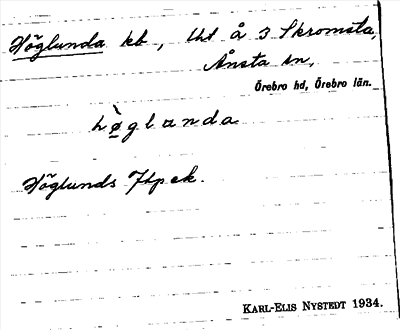 Höglunda kb, Uht å 3 Skromsta,
Ånsta sn,
Örebro hd, Örebro län.
hø̀glanda
Höglunds Jtpek.
KARL-ELIS NYSTEDT 1934.